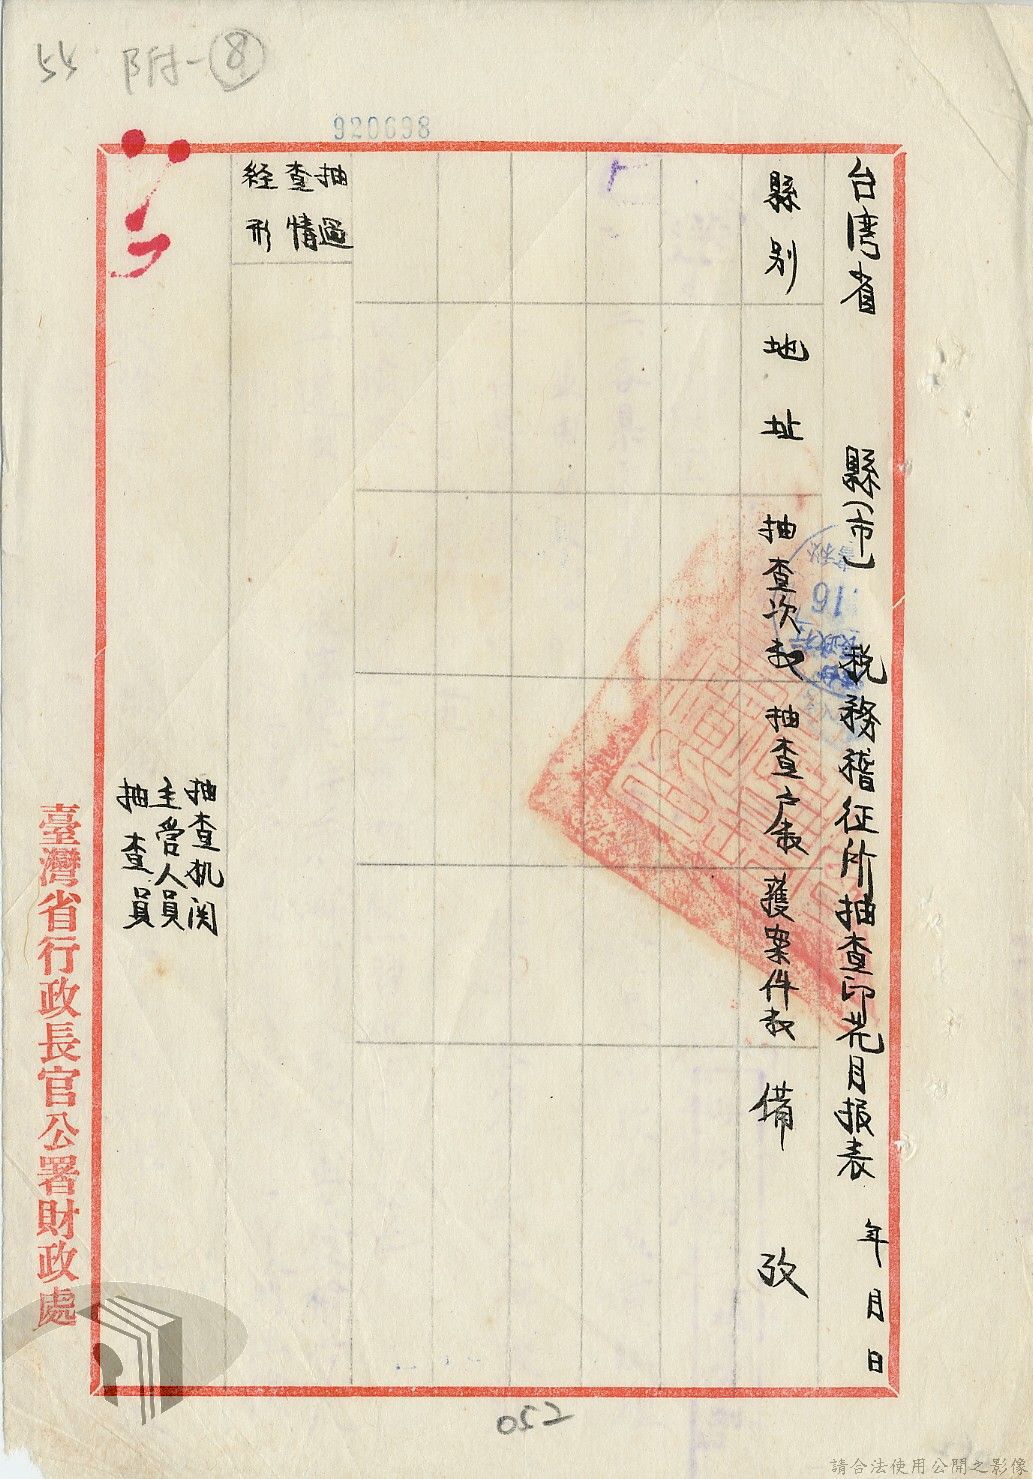 55 附一⑧
920698
台湾省 縣(市) 税務稽征所抽查印花月报表 年月日
縣別 地址 抽查次数 抽查户数 獲案件数 備攷
抽過
查情
経形
抽查机関
主管人員
抽查員
臺灣省行政長官公署財政處
052
請合法使用公開之影像